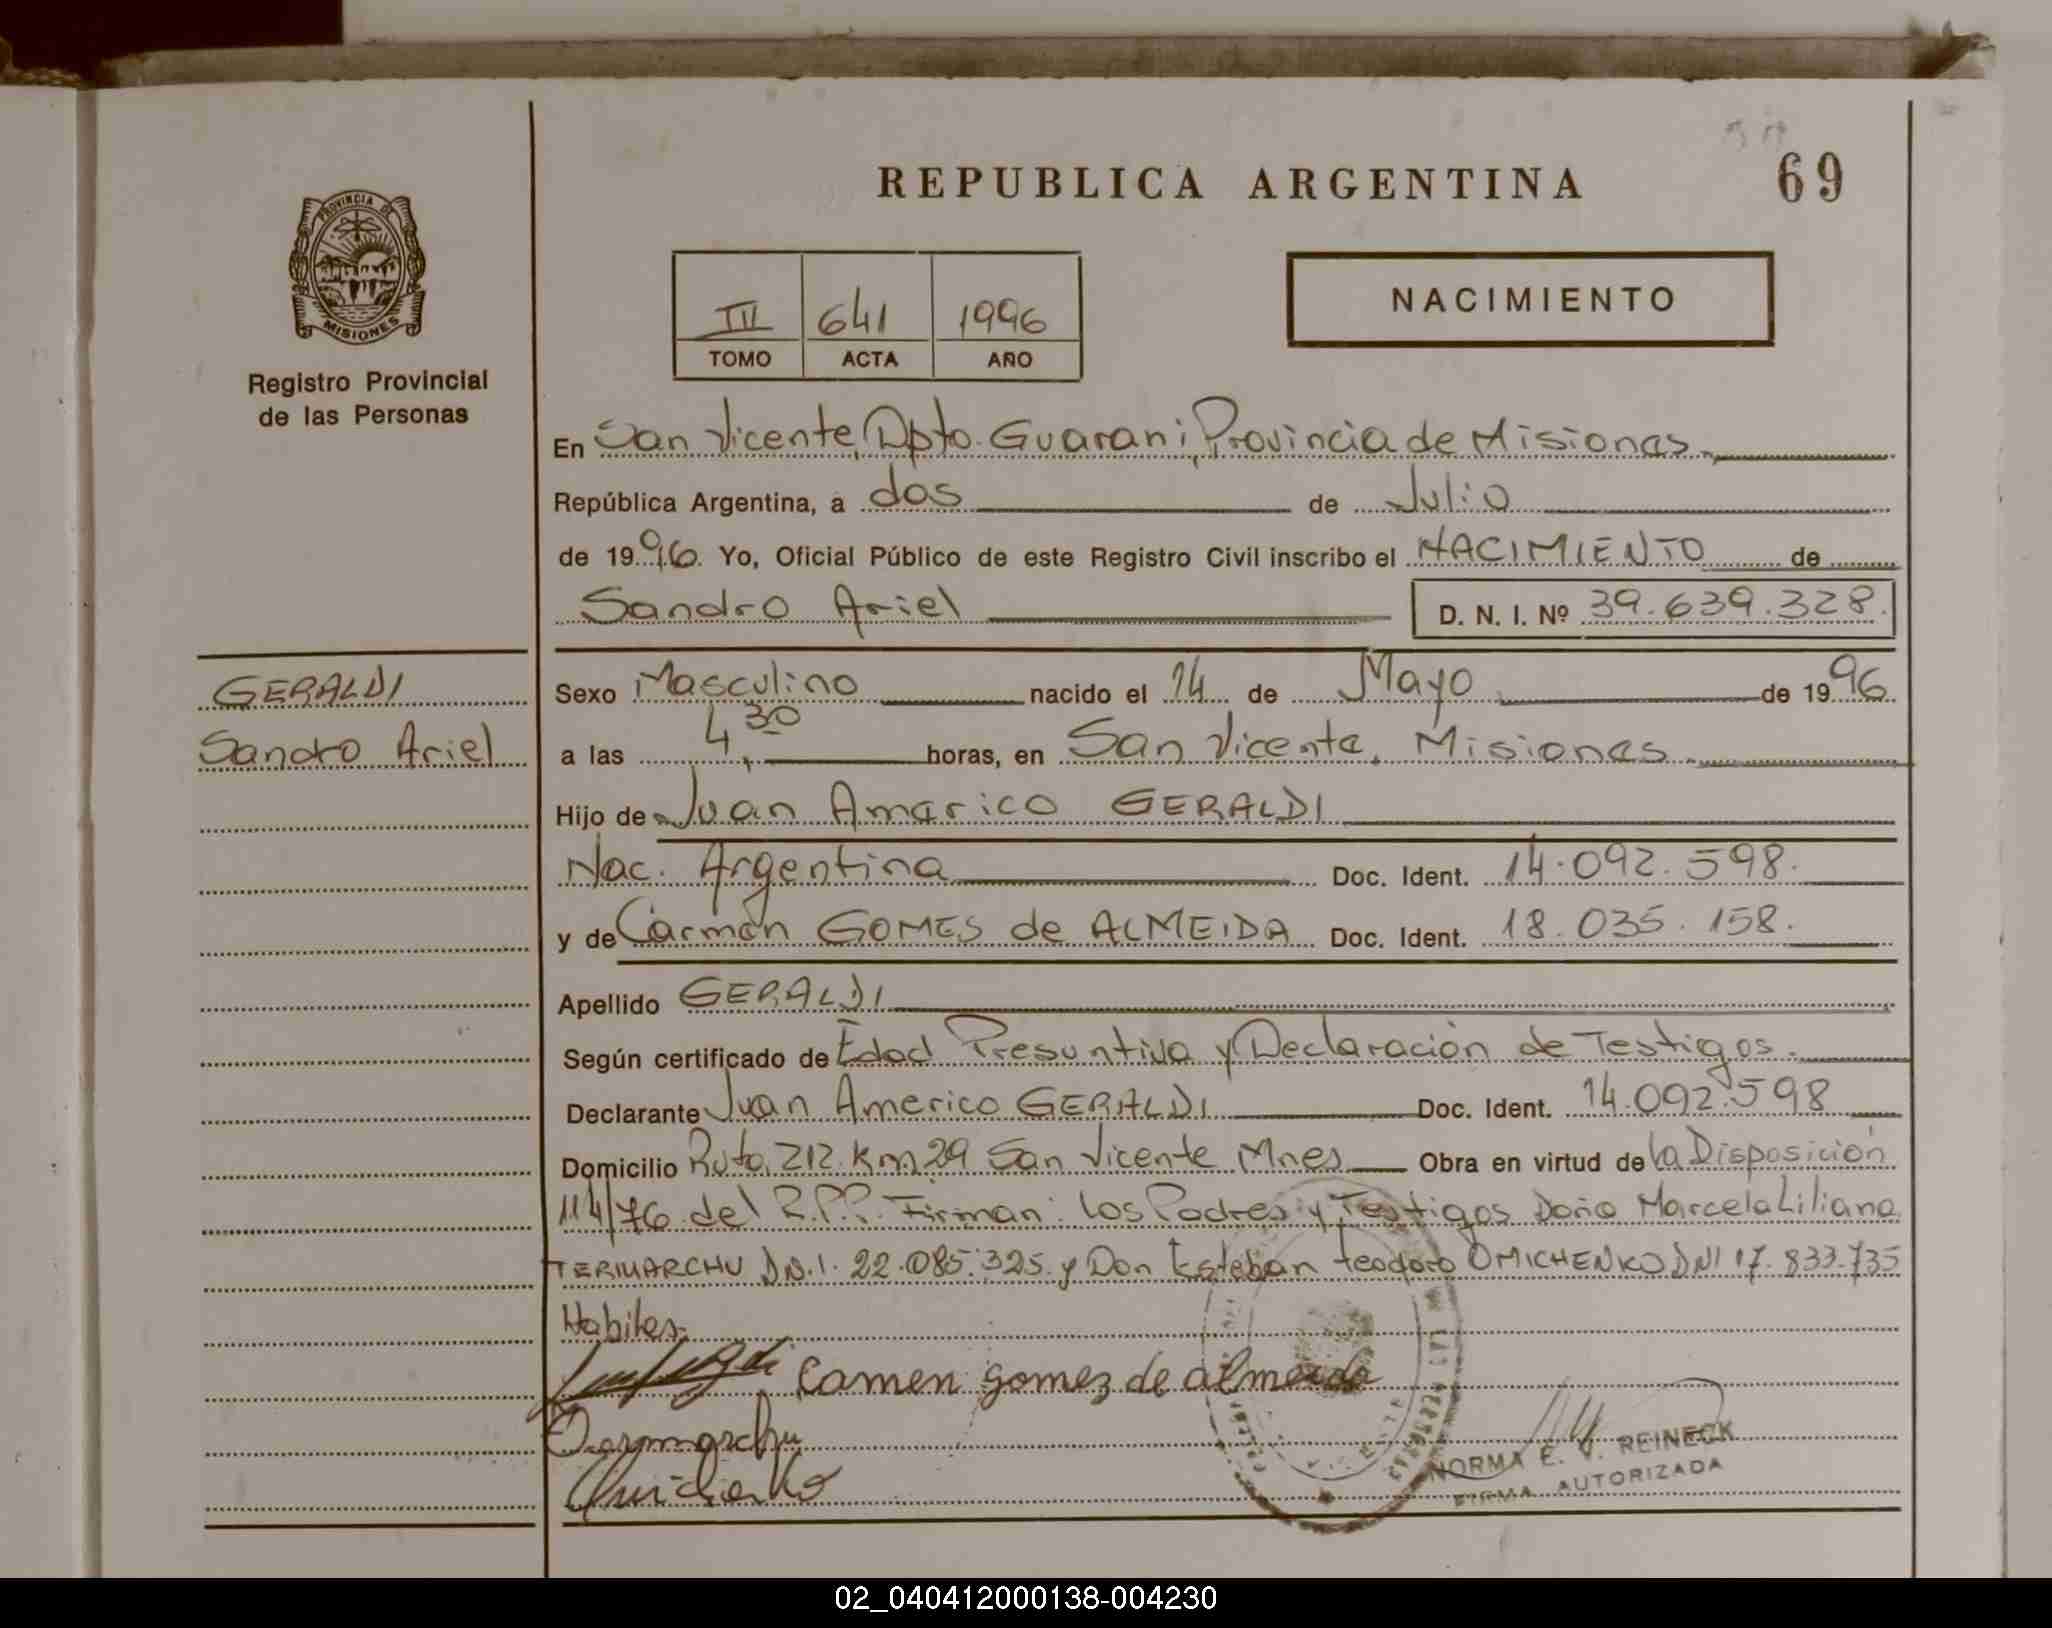 REPUBLICA ARGENTINA
69
PROVINCIA DE
MISIONES
Registro Provincial
de las Personas
III 641 1996
TOMO ACTA AÑO
NACIMIENTO
En San Vicente, Dpto. Guarani, Provincia de Misiones.
República Argentina, a dos de Julio
de 1996. Yo, Oficial Público de este Registro Civil inscribo el NACIMIENTO de
Sandro Ariel D. N. I. Nº 39.639.328.
GERALDI
Sandro Ariel
Sexo Masculino nacido el 14 de Mayo de 1996
a las 4,30 horas, en San Vicente. Misiones.
Hijo de Juan Americo GERALDI
Nac. Argentina Doc. Ident. 14.092.598.
y de Carmen GOMES de ALMEIDA Doc. Ident. 18.035.158.
Apellido GERALDI
Según certificado de Edad Presuntiva y Declaración de Testigos.
Declarante Juan Americo GERALDI Doc. Ident. 14.092.598
Domicilio Ruta 212 Km 29 San Vicente Mnes Obra en virtud de la Disposición
114/76 del R.P.P. Firman: los Padres y Testigos Doña Marcela Liliana
TERMARCHU D.N.I. 22.085.325 y Don Esteban teodoro OMICHENKO DNI 17.833.735
Habiles.
Camen gomez de almeida
NORMA E. V. REINECK
FIRMA AUTORIZADA
02_040412000138-004230